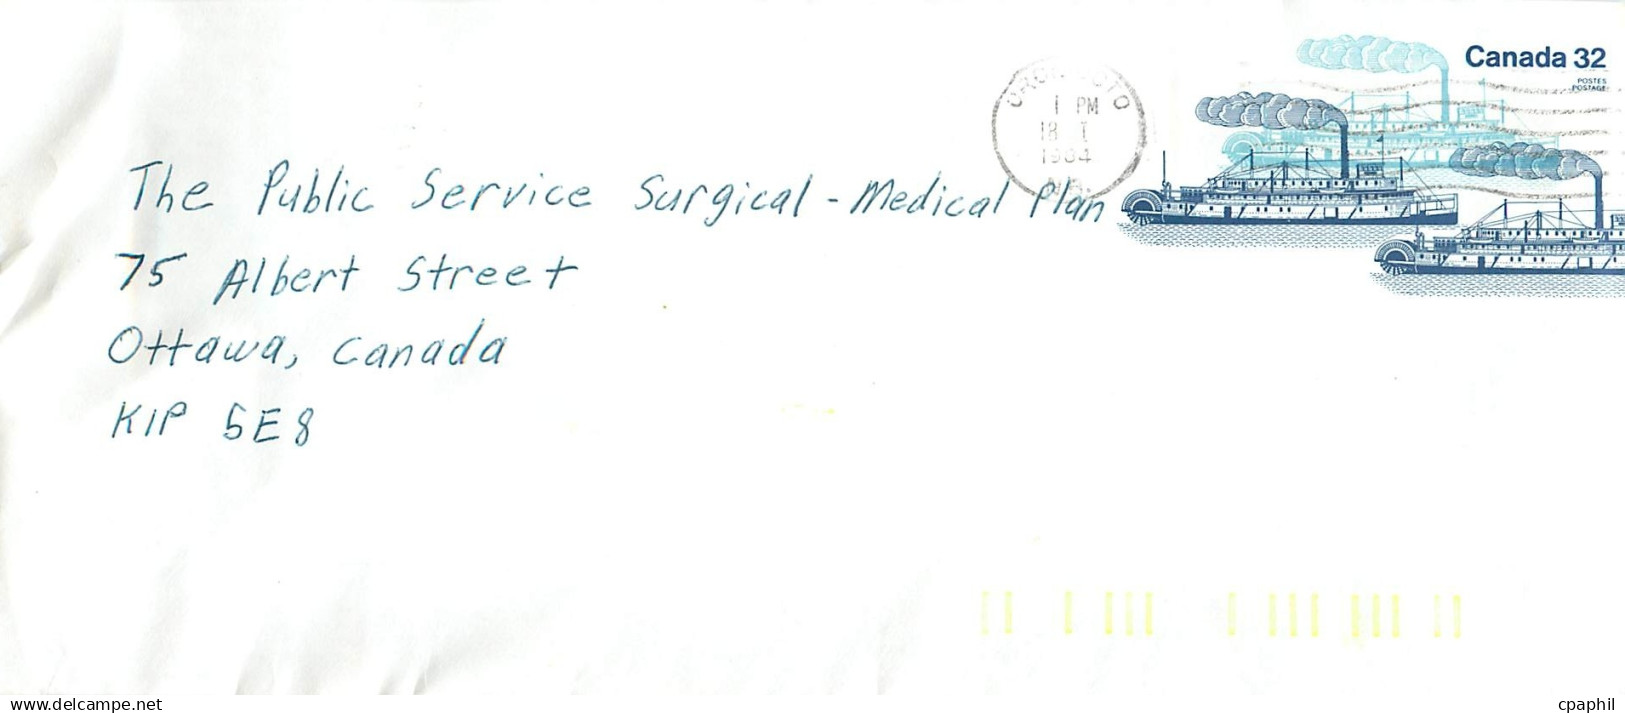 Canada 32
POSTES
POSTAGE
OROMOCTO
1 PM
18 I
1984
N.B.
The Public Service Surgical - Medical Plan
75 Albert Street
Ottawa, Canada
K1P 5E8
www.delcampe.net
cpaphil